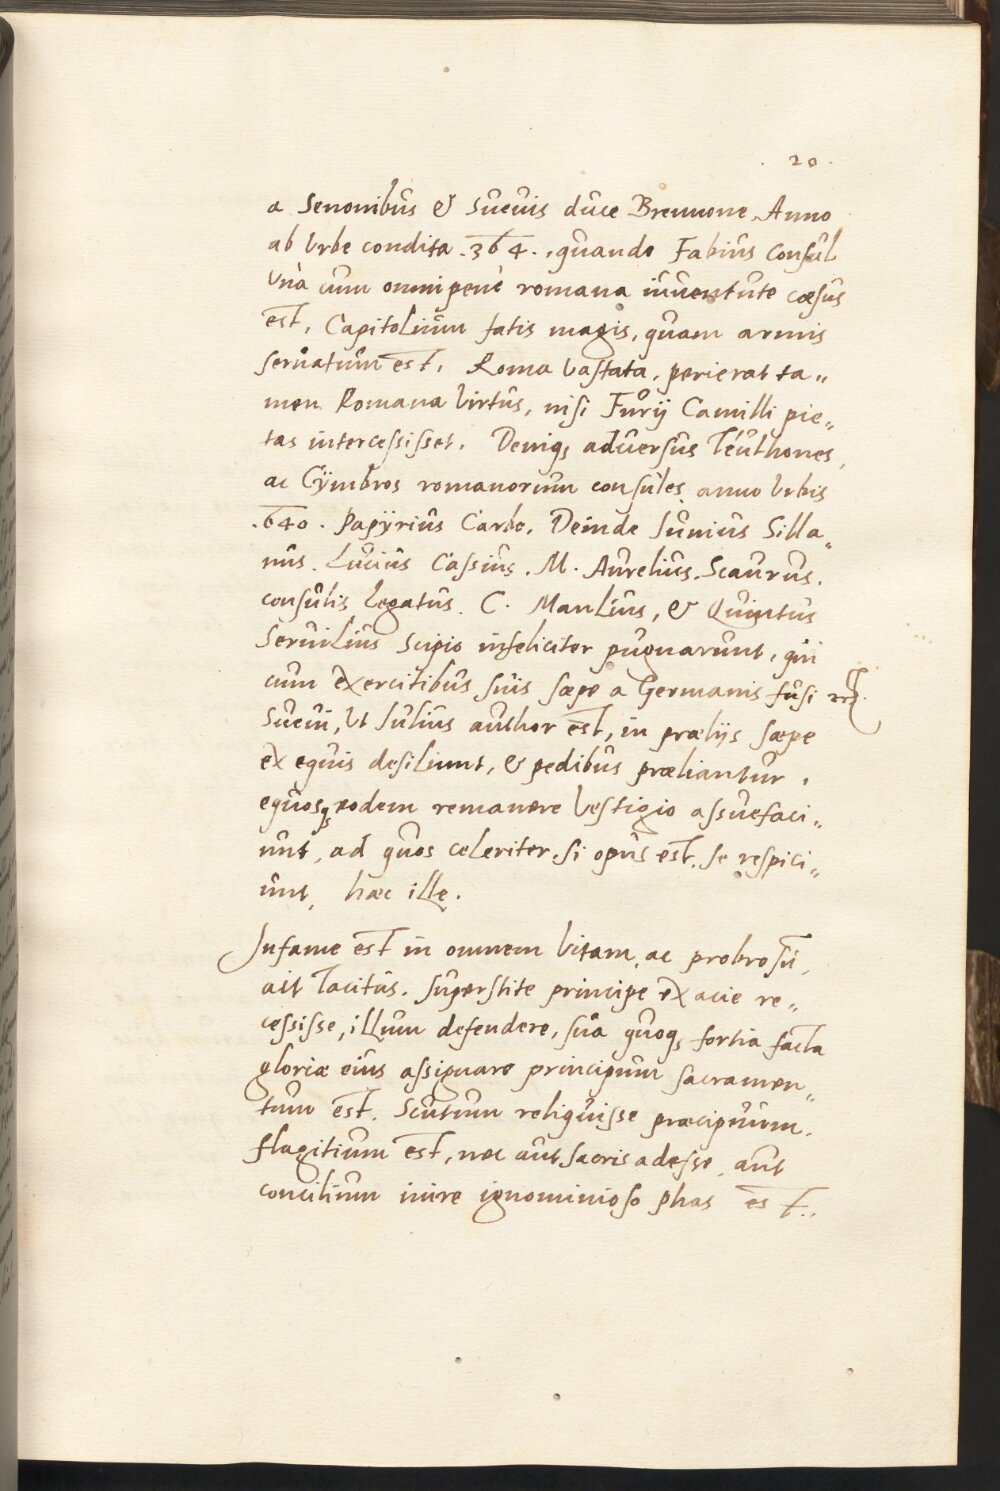 . 20 .
a Senonibus & Suevis duce Brennone, Anno
ab Urbe condita .364., quando Fabius Consul
Unà cum omni penè romana iuventute cæsus
est, Capitolium fatis magis, quam armis
servatum est, Roma Vastata, perierat ta„
men Romana Virtus, nisi Furij Camilli pie„
tas intercessisset. Deniq; adversus Teuthones,
ac Cÿmbros romanorum consules, anno Urbis
.640. Papÿrius Carbo, Deinde Iunius Silla„
nus. Lucius Cassius. M. Aurelius. Scaurus.
consulis Legatus. C. Manlius, & Quintus
Servilius Scipio infeliciter pugnarunt, qui
cum exercitibus suis sæpe a Germanis fusi
Suevi, Ut Iulius author est, in prælijs sæpe
ex equis desiliunt, & pedibus præliantur,
equosq; eodem remanere Vestigio assuefaci„
unt, ad quos celeriter, si opus est, se respici„
unt, hæc ille.
Infame est in omnem Vitam, ac probrosū,
ait Tacitus. superstite principe ex acie re„
cessisse, illum defendere, sua quoq; fortia facta
gloriæ eius assignare principum sacramen„
tum est. Scutum reliquisse præcipuum.
flagitium est, nec aut sacris adesse, aut
concilium inire ignominioso phas est.,